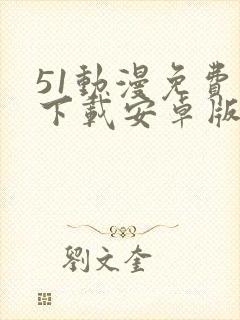 51動漫免費
下載安卓版
劉文奎